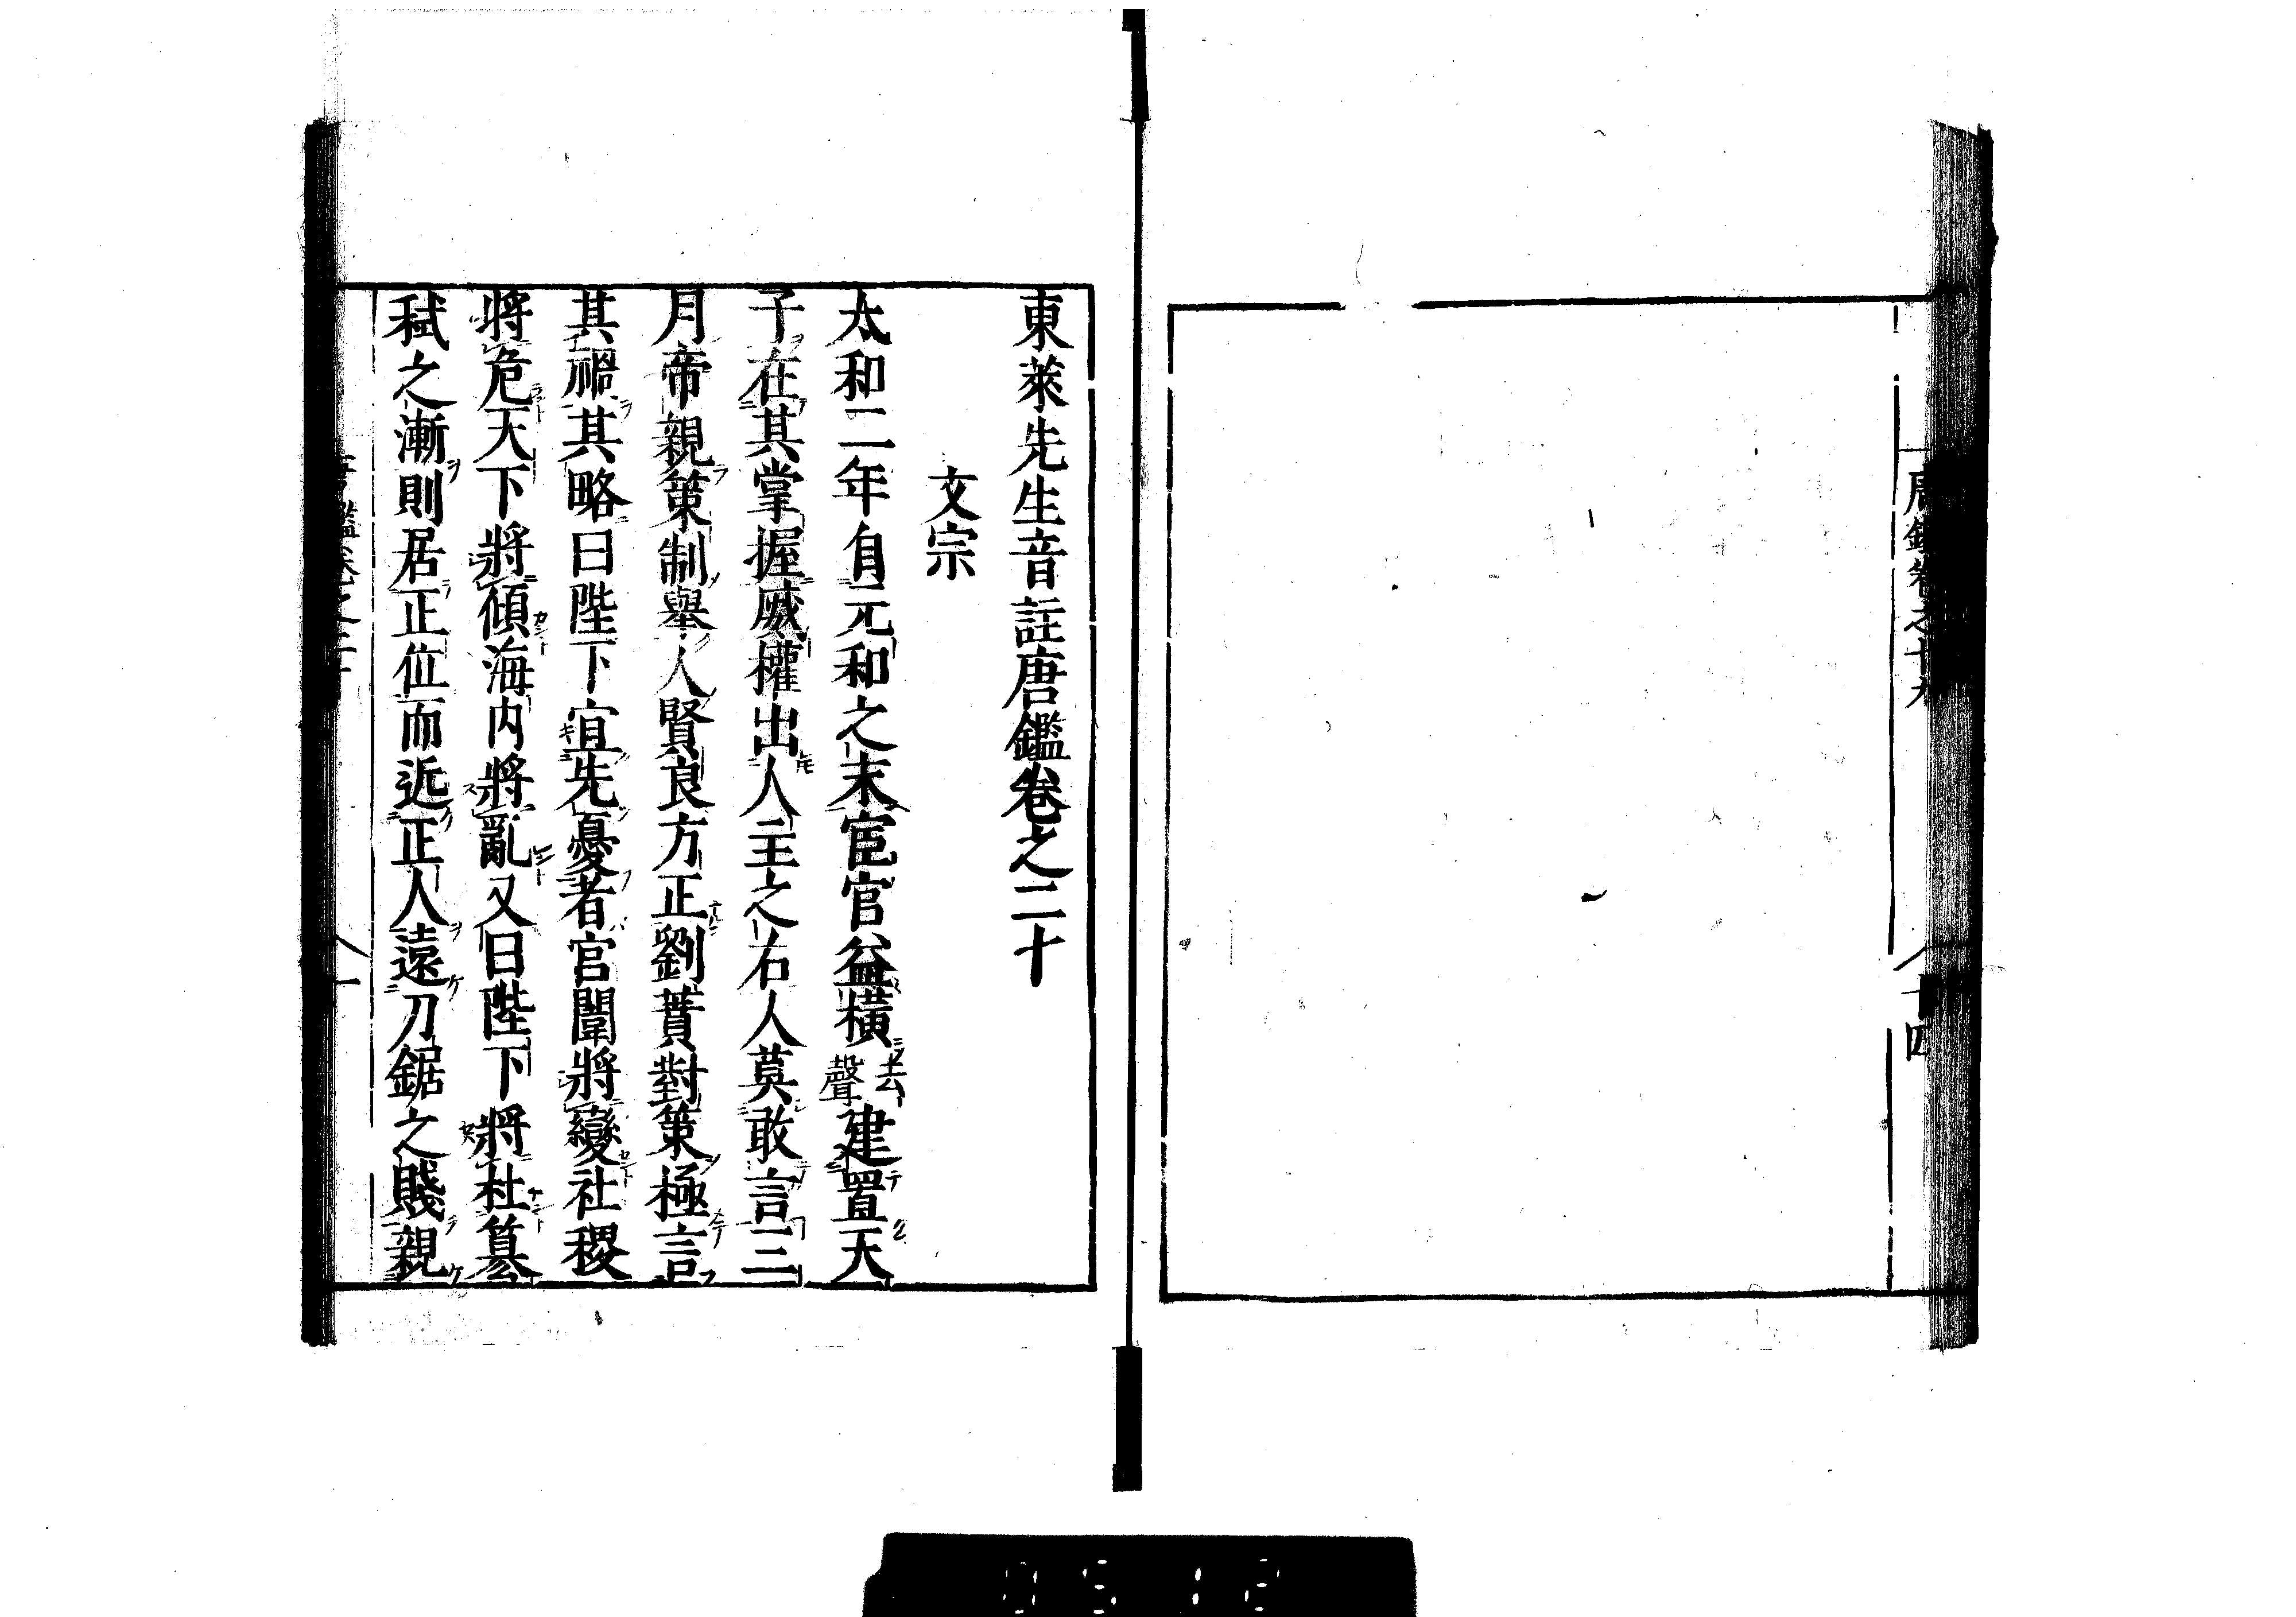 唐鑑卷之十九
十四
東萊先生音註唐鑑卷之二十
文宗
太和二年自元和之末宦官益橫去聲建置天
子在其掌握威權出人主之右人莫敢言三
月帝親策制舉人賢良方正劉蕡對策極言
其禍其略曰陛下宜先憂者宮闈將變社稷
將危天下將傾海內將亂又曰陛下將杜篡
弒之漸則居正位而近正人遠刀鋸之賤親
鑑卷之二十
一
0512